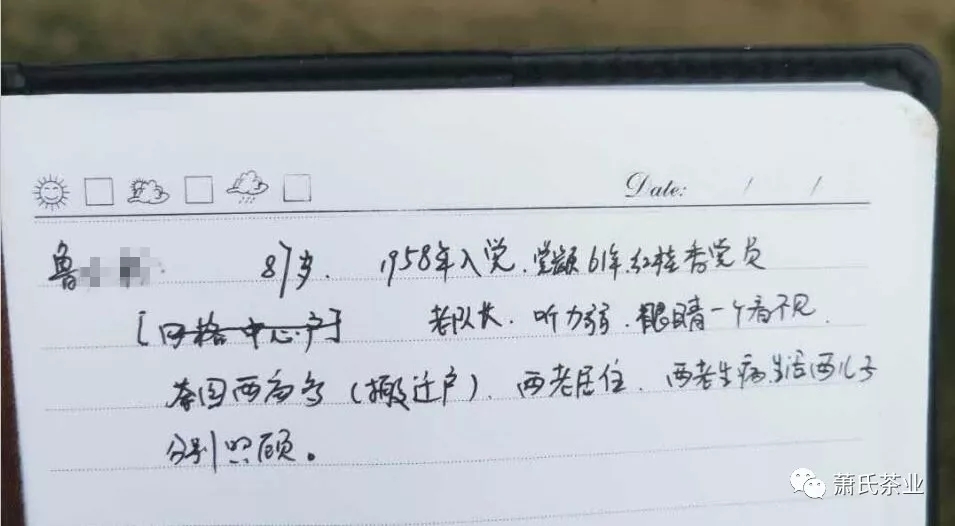 Date: / /
鲁 87岁. 1958年入党.党龄61年.红桂香党员
[网格中心户] 老队长.听力弱.眼睛一个看不见.
(搬迁户).两老居住.两老生病.生活两儿子
分别照顾。
萧氏茶业